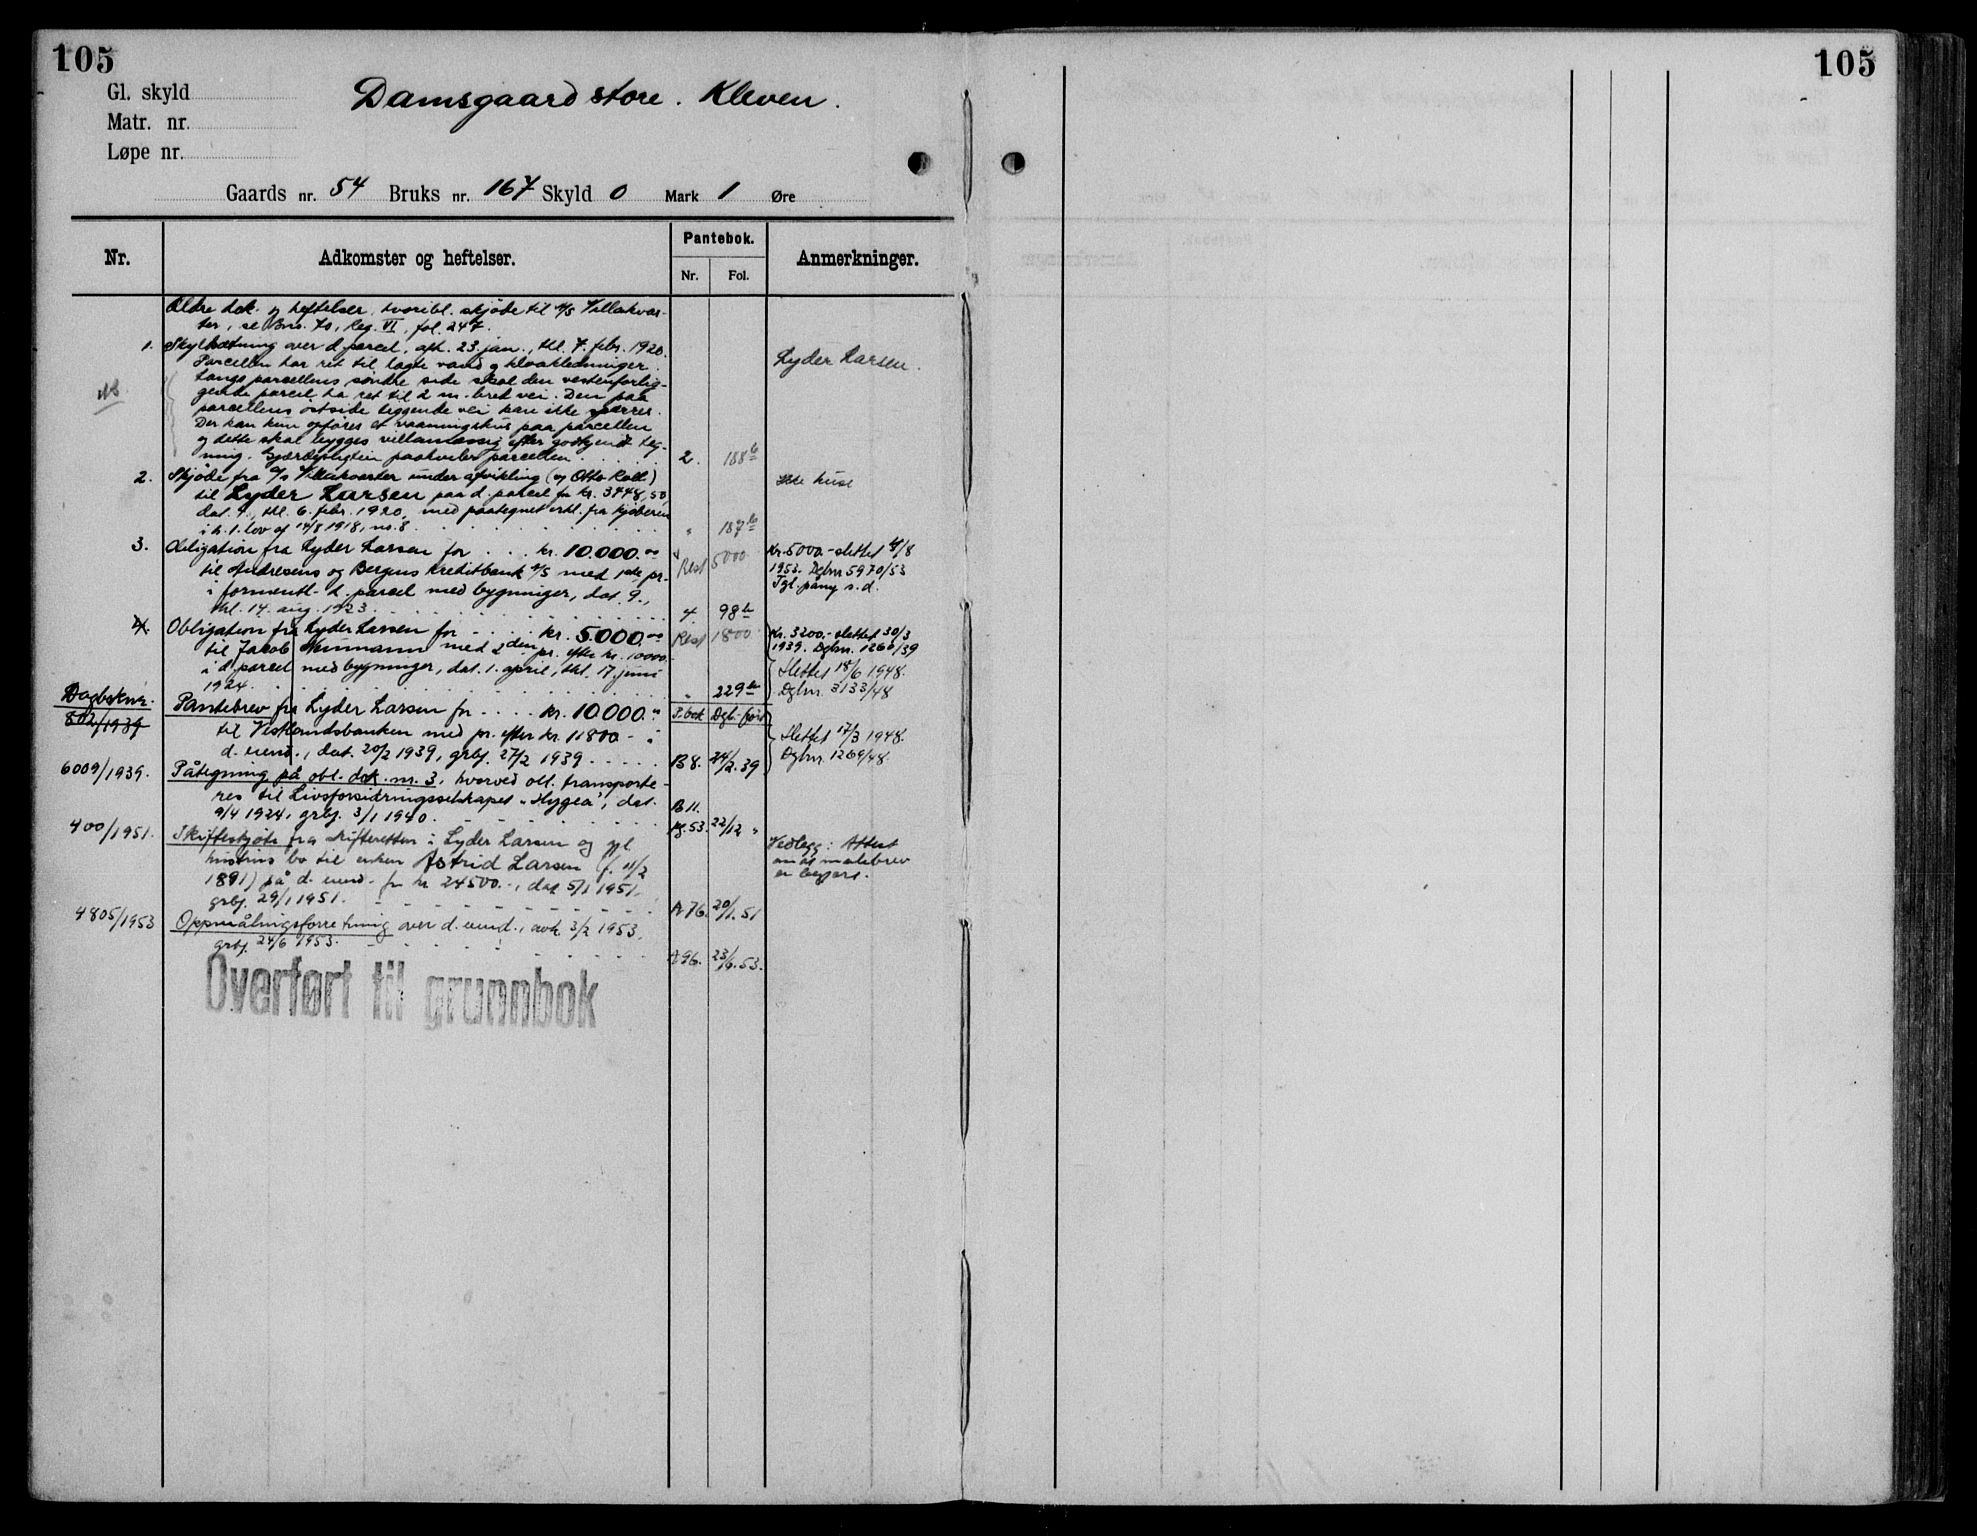 105
105
Gl. skyld
Matr. nr.
Løpe nr.
Damsgaard store. Kleven.
Gaards nr. 54 Bruks nr. 167 Skyld 0 Mark 1 Øre
Nr.
Adkomster og heftelser.
Pantebok.
Nr. Fol.
Anmerkninger.
Ældre dok. og heftelser, hvoribl. skjøde til A/S Villakvar-
ter, se Brs. 70, Reg. VI, fol. 247.
1. Skyldsætning over d. parcel, afh. 23. jan., thl. 7. febr. 1920.
Lyder Larsen.
Parcellen har ret til lagte vand og kloakledninger.
Langs parcellens søndre side skal den vestenforlig-
NB
gende parcel ha ret til 2 m. bred vei. Den paa
parcellens østside liggende vei kan ikke spærres.
Der kan kun opføres et vaaningshus paa parcellen
og dette skal bygges villamæssig efter godkjendt teg-
ning. Gjærdepligten paahviler parcellen. 2. 188 b
2. Skjøde fra A/S Villakvarter under afvikling (v/ Otto Roll)
til Lyder Larsen paa d. parcel for kr. 3748,50,
dat. 9., thl. 6. febr. 1920, med paategnet erkl. fra kjøberen
i h. t. lov af 14/8 1918, no. 8 " 187 b
huse
3. Obligation fra Lyder Larsen for kr. 10.000.00
Rest 5000
Kr. 5000.- slettet 4/8
1953. Dgbnr 5970/53
Tgl. påny s.d.
til Andresens og Bergens Kreditbank A/S med 1ste pr.
i formentl. d. parcel med bygninger, dat. 9.,
thl. 14. aug. 1923 4. 98 b
4. Obligation fra Lyder Larsen for kr. 5.000.00
Rest 1800
Kr. 3200.- slettet 30/3
1939. Dgbnr. 1260/39
til Jakob Neumann med 2den pr. efter kr. 10000.-
i d. parcel med bygninger, dat. 1. april, thl. 17. juni
1924 " 229 b
Slettet 18/6 1948.
Dgbnr. 3133/48
Dagboknr.
802/1939
Pantebrev fra Lyder Larsen for kr. 10.000.00
P.bok Dgb.-ført
til Vestlandsbanken med pr. efter kr. 11800.- i
d. eiend., dat. 20/2 1939, grbf. 27/2 1939 B8. 24/2.39
Slettet 17/3 1948.
Dgbnr. 1269/48
6009/1939. Påtegning på obl. dok. nr. 3, hvorved obl. transporte-
res til Livsforsikringsselskapet "Hygea", dat.
9/4 1924, grbf. 3/1 1940. B 11. 53. 22/12 "
400/1951. Skifteskjøte fra skifteretten i Lyder Larsen og gjl.
hustrus bo til enken Astrid Larsen (f. 11/2
1891) på d. eiend. for kr 24500.-, dat 5/1 1951,
grbf. 29/1 1951. A 76. 20/1.51
Vedlegg: Attest
om at målebrev
er begjært.
4805/1953 Oppmålingsforretning over d. eiend., avh. 3/2 1953,
grbf. 24/6 1953. A 96. 23/6.53.
Overført til grunnbok